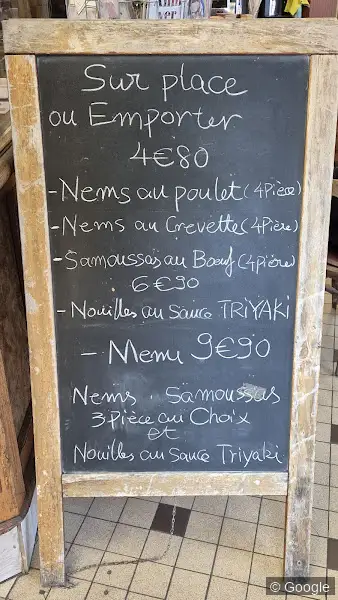 Sur place
ou Emporter
4€80
- Nems au poulet (4 Pièce)
- Nems au Crevette (4 Pièce)
- Samoussas au Bœuf (4 pièce)
6€90
- Nouilles au Sauce TRIYAKI
- Menu 9€90
Nems. Samoussas
3 Pièce au Choix
et
Nouilles au Sauce Triyaki
© Google